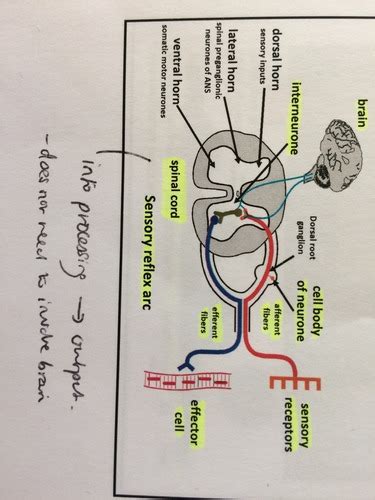 brain
dorsal horn
sensory inputs
lateral horn
spinal preganglionic
neurones of ANS
ventral horn
somatic motor neurones
interneurone
spinal cord
Sensory reflex arc
Dorsal root
ganglion
cell body
of neurone
afferent
fibers
efferent
fibers
sensory
receptors
effector
cell
info processing → output.
- does not need to involve brain